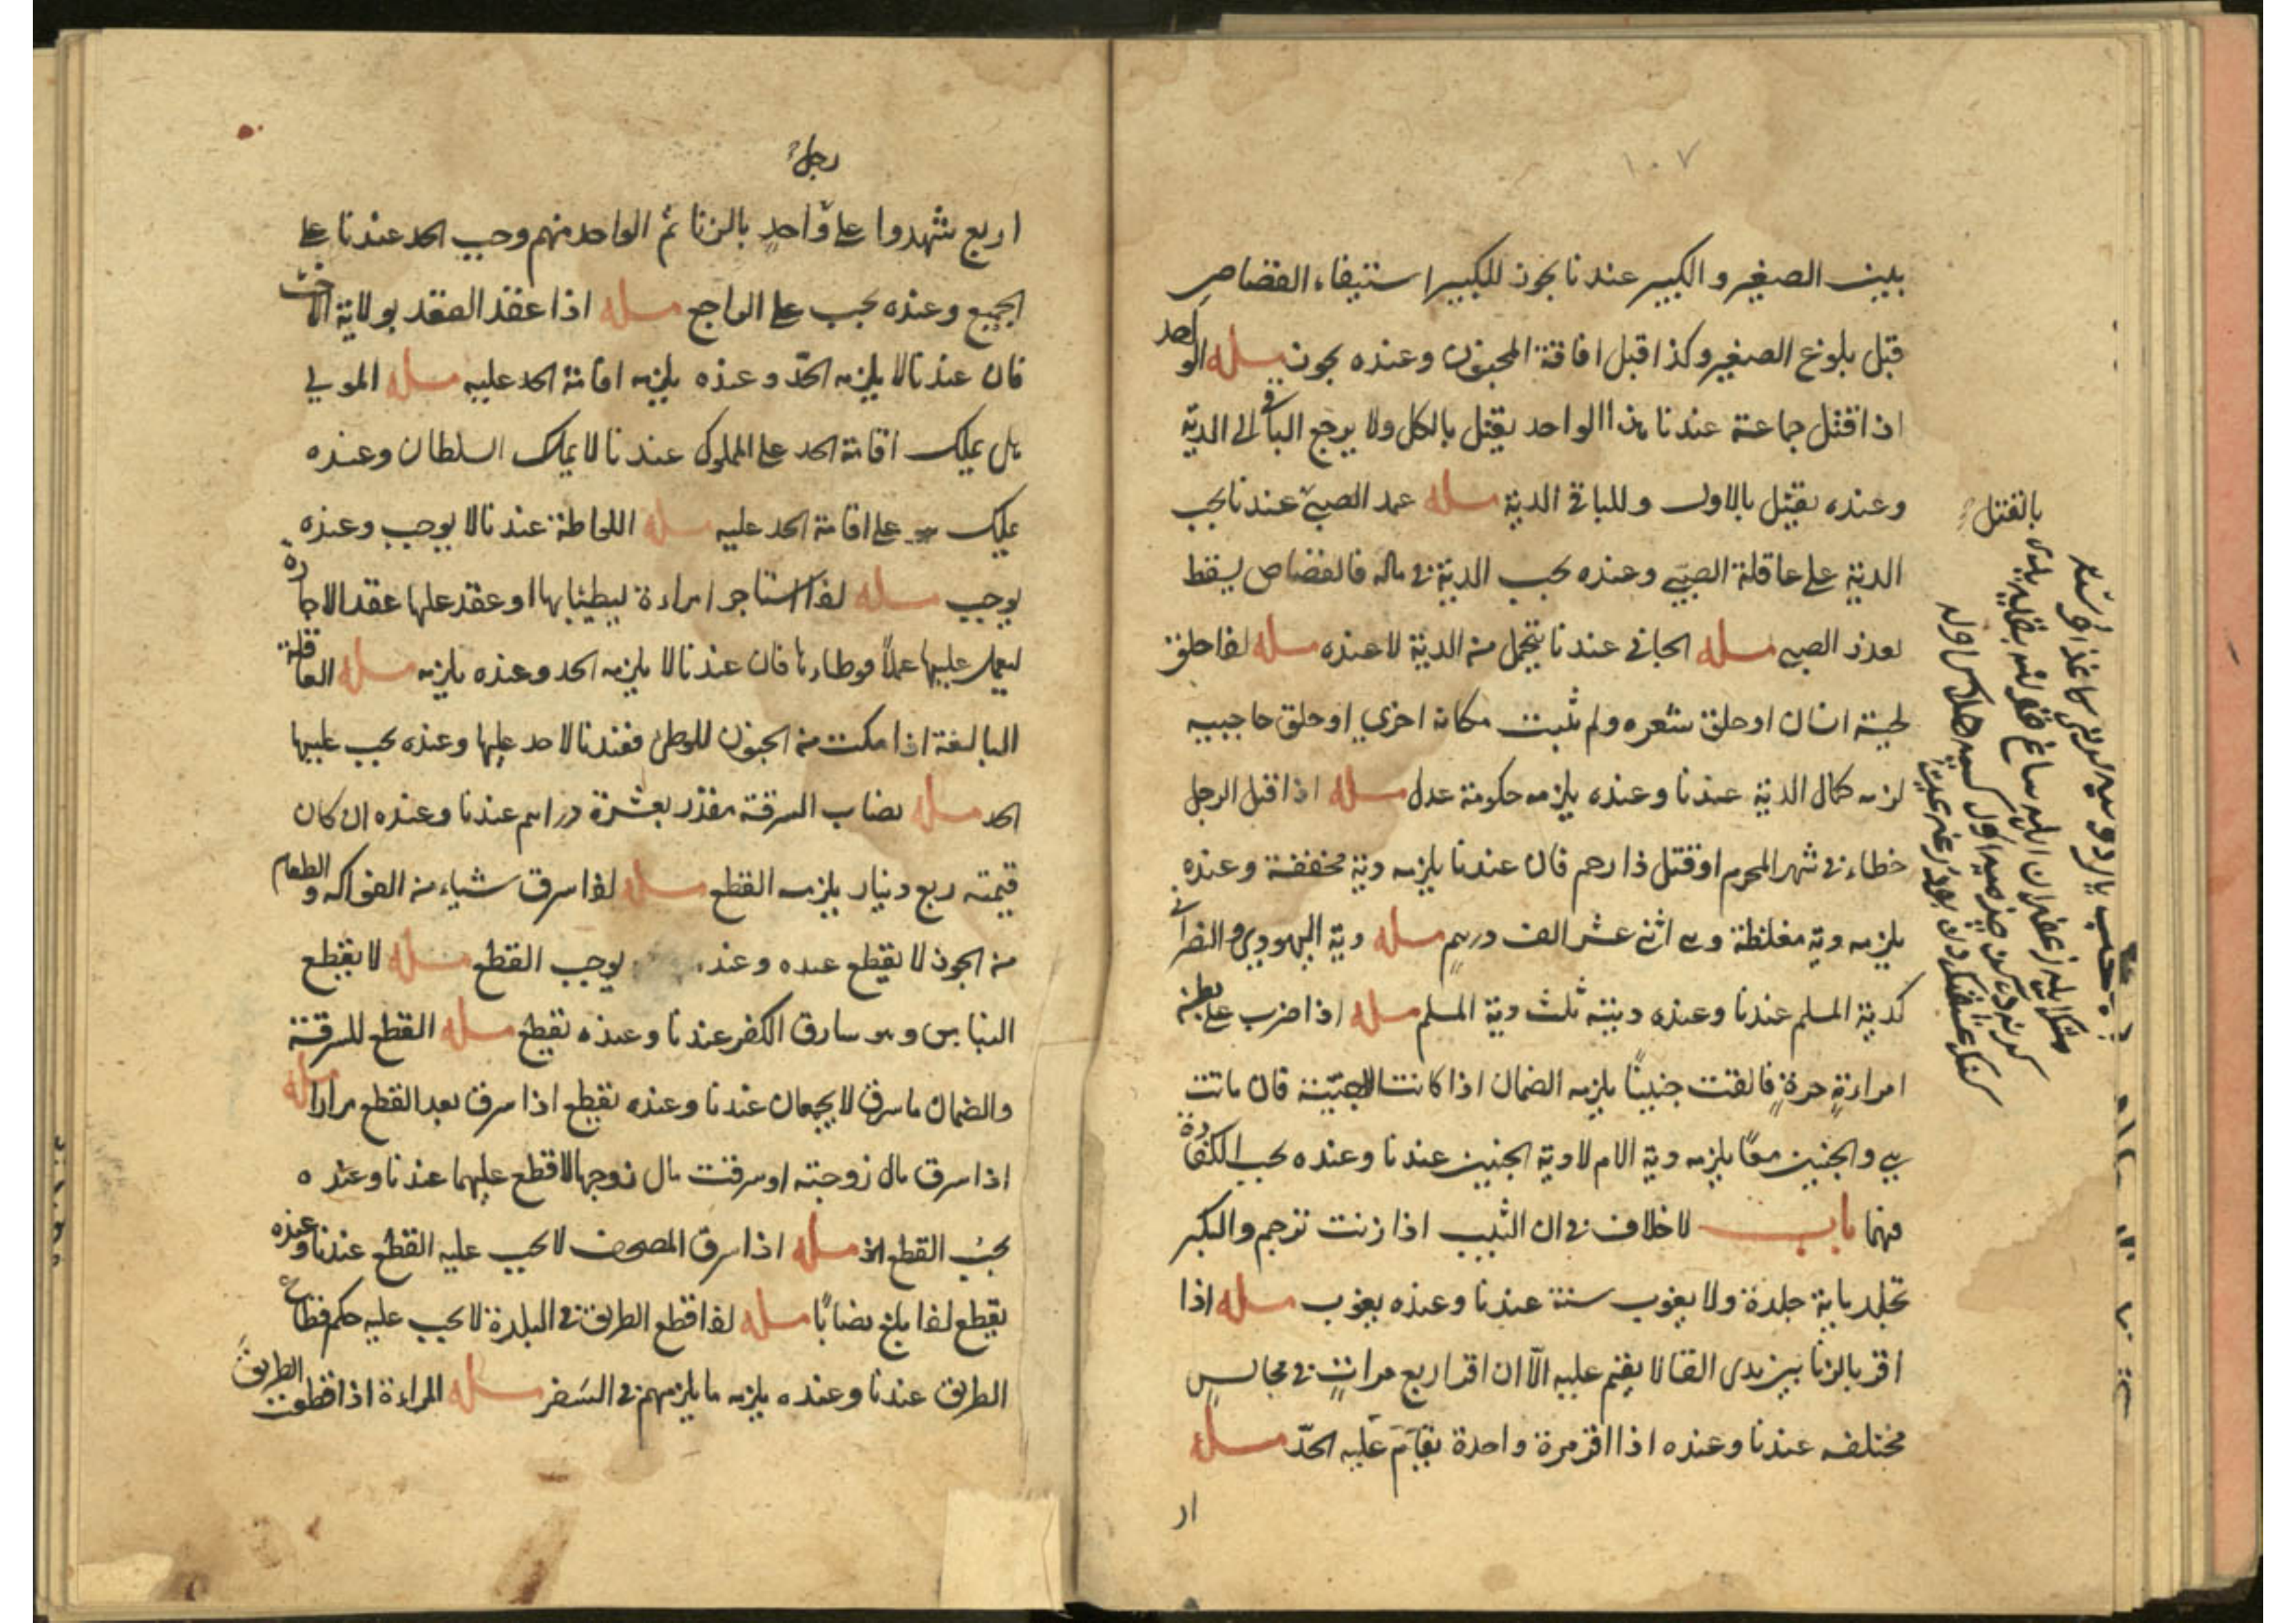 ١٠٧
بين الصغير والكبير عندنا يجوز للكبير استيفاء القصاص
قبل بلوغ الصغير وكذا قبل افاقة المجنون وعنده يجوز مسله الواحد
اذا قتل جماعة عندنا هذا الواحد يقتل بالكل ولا يرجع الباقي الى الدية
وعنده يقتل بالاول وللباقي الدية مسله عمد الصبي عندنا يجب
الدية على عاقلة الصبي وعنده يجب الدية في ماله فالقصاص يسقط
بعذر الصبي مسله الجاني عندنا يتحمل من الدية لا عنده مسله اذا حلق
لحية انسان او حلق شعره ولم تنبت مكانه اخرى او حلق حاجبيه
لزمه كمال الدية عندنا وعنده يلزمه حكومة عدل مسله اذا قتل الرجل
خطاء في شهر المحرم او قتل ذا رحم فان عندنا يلزمه دية مخففة وعنده
يلزمه دية مغلظة وهي اثنى عشر الف درهم مسله دية اليهودي والنصراني
كدية المسلم عندنا وعنده ديته ثلث دية المسلم مسله اذا ضرب على بطن
امراءة حرة فالقت جنينًا يلزمه الضمان اذا كانت فان ماتت
هي والجنين معًا يلزمه دية الام لا دية الجنين عندنا وعنده يجب الكفارة
فيهما باب لا خلاف في ان الثيب اذا زنت ترجم والبكر
تجلد باية جلدة ولا يغرب سنة عندنا وعنده يغرب مسله اذا
اقر بالزنا بين يدى القا لا يقيم عليه الّا ان اقر اربع مرات في مجالس
مختلفه عندنا وعنده اذا اقر مرة واحدة يقام عليه الحدّ مسله
ار
بالقتل
رجل
اربع شهدوا على واحد بالزنا ثم الواحد منهم وجب الحد عندنا على
الجميع وعنده يجب على الراجع مسله اذا عقد العقد بولاية الاخت
فان عندنا لا يلزمه الحدّ وعنده يلزمه اقامة الحد عليه مسله المولى
هل يملك اقامة الحد على المملوك عندنا لا يملك السلطان وعنده
يملك على اقامة الحد عليه مسله اللواطة عندنا لا يوجب وعنده
يوجب مسله اذا استاجر امراءة ليطئها او عقد علها عقد الاجارة
ليعمل عليها عملًا فوطاءها فان عندنا لا يلزمه الحد وعنده يلزمه مسله العاقلة
البالغة اذا مكنت من المجنون للوطئ فعندنا لا حد عليها وعنده يجب عليها
الحد مسله نصاب السرقة مقدر بعشرة دراهم عندنا وعنده ان كان
قيمته ربع دينار يلزمه القطع مسله اذا سرق شياء من الفواكه والطعام
من الجوز لا يقطع عنده وعند يوجب القطع مسله لا يقطع
النباش وهو سارق الكفن عندنا وعنده تقطع مسله القطع للسرقة
والضمان ما سرق لا يجمعان عندنا وعنده تقطع اذا سرق بعد القطع مرارا مسله
اذا سرق مال زوجته او سرقت مال زوجها لا قطع عليهما عندنا وعنده
يجب القطع مسله اذا سرق المصحف لا يجب عليه القطع عندنا وعنده
يقطع اذا بلغ نصابًا مسله اذا قطع الطريق في البلدة لا يجب عليه حكم قطاع
الطريق عندنا وعنده يلزمه ما يلزمهم في السفر مسله المراءة اذا قطعت الطريق